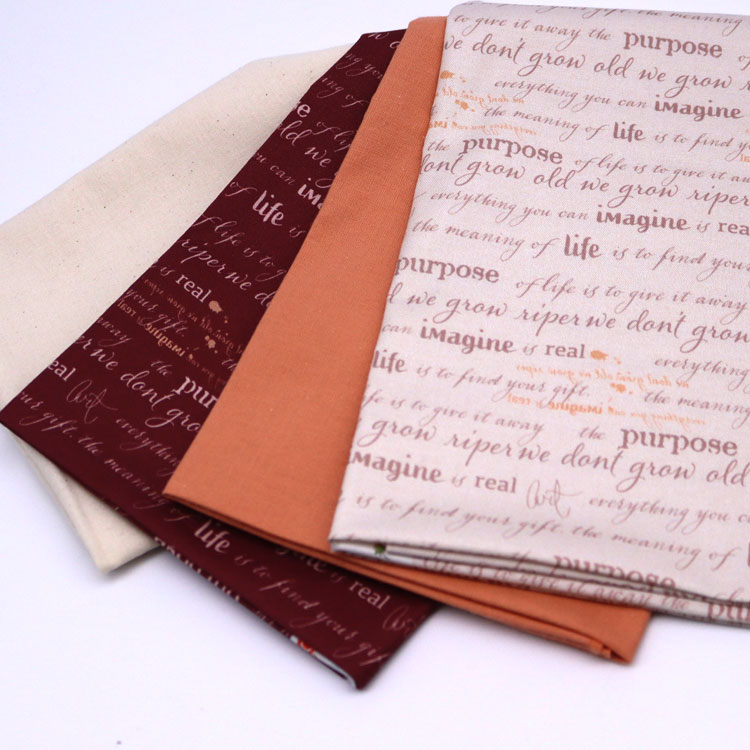 to give it away the purpose of
we don't grow old we grow
everything you can iMagine
the meaning of life is to find you
the purpose of life is to give it aw
don't grow old we grow riper we
everything you can iMagine is rea
the meaning of life is to find you
purpose of life is to give it away
d we grow riper we don't grow
can iMagine is real everything
life is to find your gift. the meaning
fe is to give it away the purpose
grow riper we don't grow old
iMagine is real Art everything you c
is to find your gift. the meaning of l
purpose
is to give it away the pu
meaning of
find your
purpose of life
old we
you can iMagi
life is
of life is to g
riper we don't
is real
your gift.
away the purpose
we don't grow
eal Art everything
gift. the meaning
life is to find your gif
is real Art